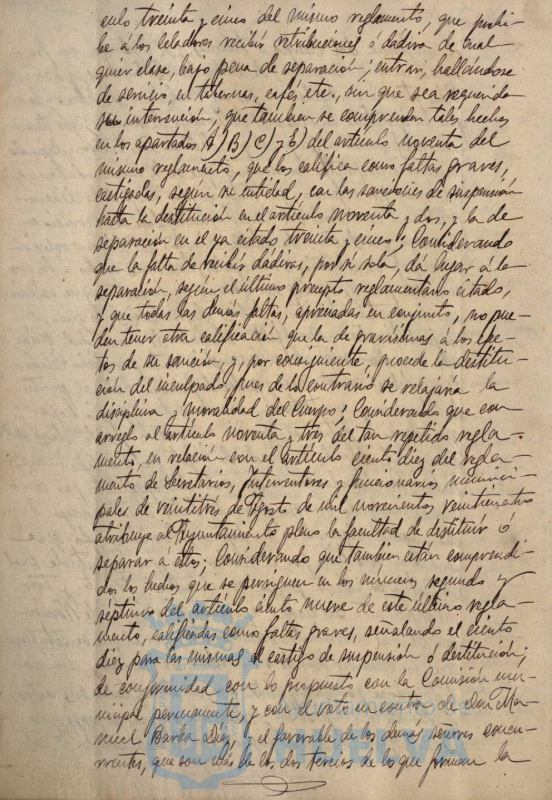 culo treinta y cinco del mismo reglamento, que prohi-
be á los Celadores recibir retribuciones ó dádiva de cual-
quier clase, bajo pena de separación; entrar, hallándose
de servicio, en tabernas, cafés, etc., sin que sea requerida
su intervención; que tambien se comprenden tales hechos
en los apartados A) B) C) y E) del artículo noventa del
mismo reglamento, que los califica como faltas graves,
castigadas, según su entidad, con las sanciones de suspensión
hasta la destitución en el artículo noventa y dos, y la de
separación en el ya citado treinta y cinco; Considerando
que la falta de recibir dádivas, por sí sola, dá lugar á la
separación, según el último precepto reglamentario citado,
y que todas las demás faltas, apreciadas en conjunto, no pue-
den tener otra calificación que la de gravísimas á los efec-
tos de su sanción, y, por consiguiente, procede la destitu-
ción del inculpado, pues de lo contrario se relajaría la
disciplina y moralidad del Cuerpo; Considerando que con
arreglo al artículo noventa y tres del tan repetido regla-
mento, en relación con el artículo ciento diez del regla-
mento de Secretarios, Interventores y funcionarios munici-
pales de veintitres de Agosto de mil novecientos veinticuatro
atribuye al Ayuntamiento pleno la facultad de destituir ó
separar a ellos; Considerando que tambien están comprendi-
dos los hechos que se persiguen en los números segundo y
séptimo del artículo ciento nueve de este último regla-
mento, calificadas como faltas graves, señalando el ciento
diez para las mismas el castigo de suspensión ó destitución;
de conformidad con lo propuesto con la Comisión mu-
nicipal permanente, y con el voto en contra de don Ma-
nuel Barba Díaz, y el favorable de los demás señores concu-
rrentes, que son más de los dos tercios de los que forman la
HUELVA